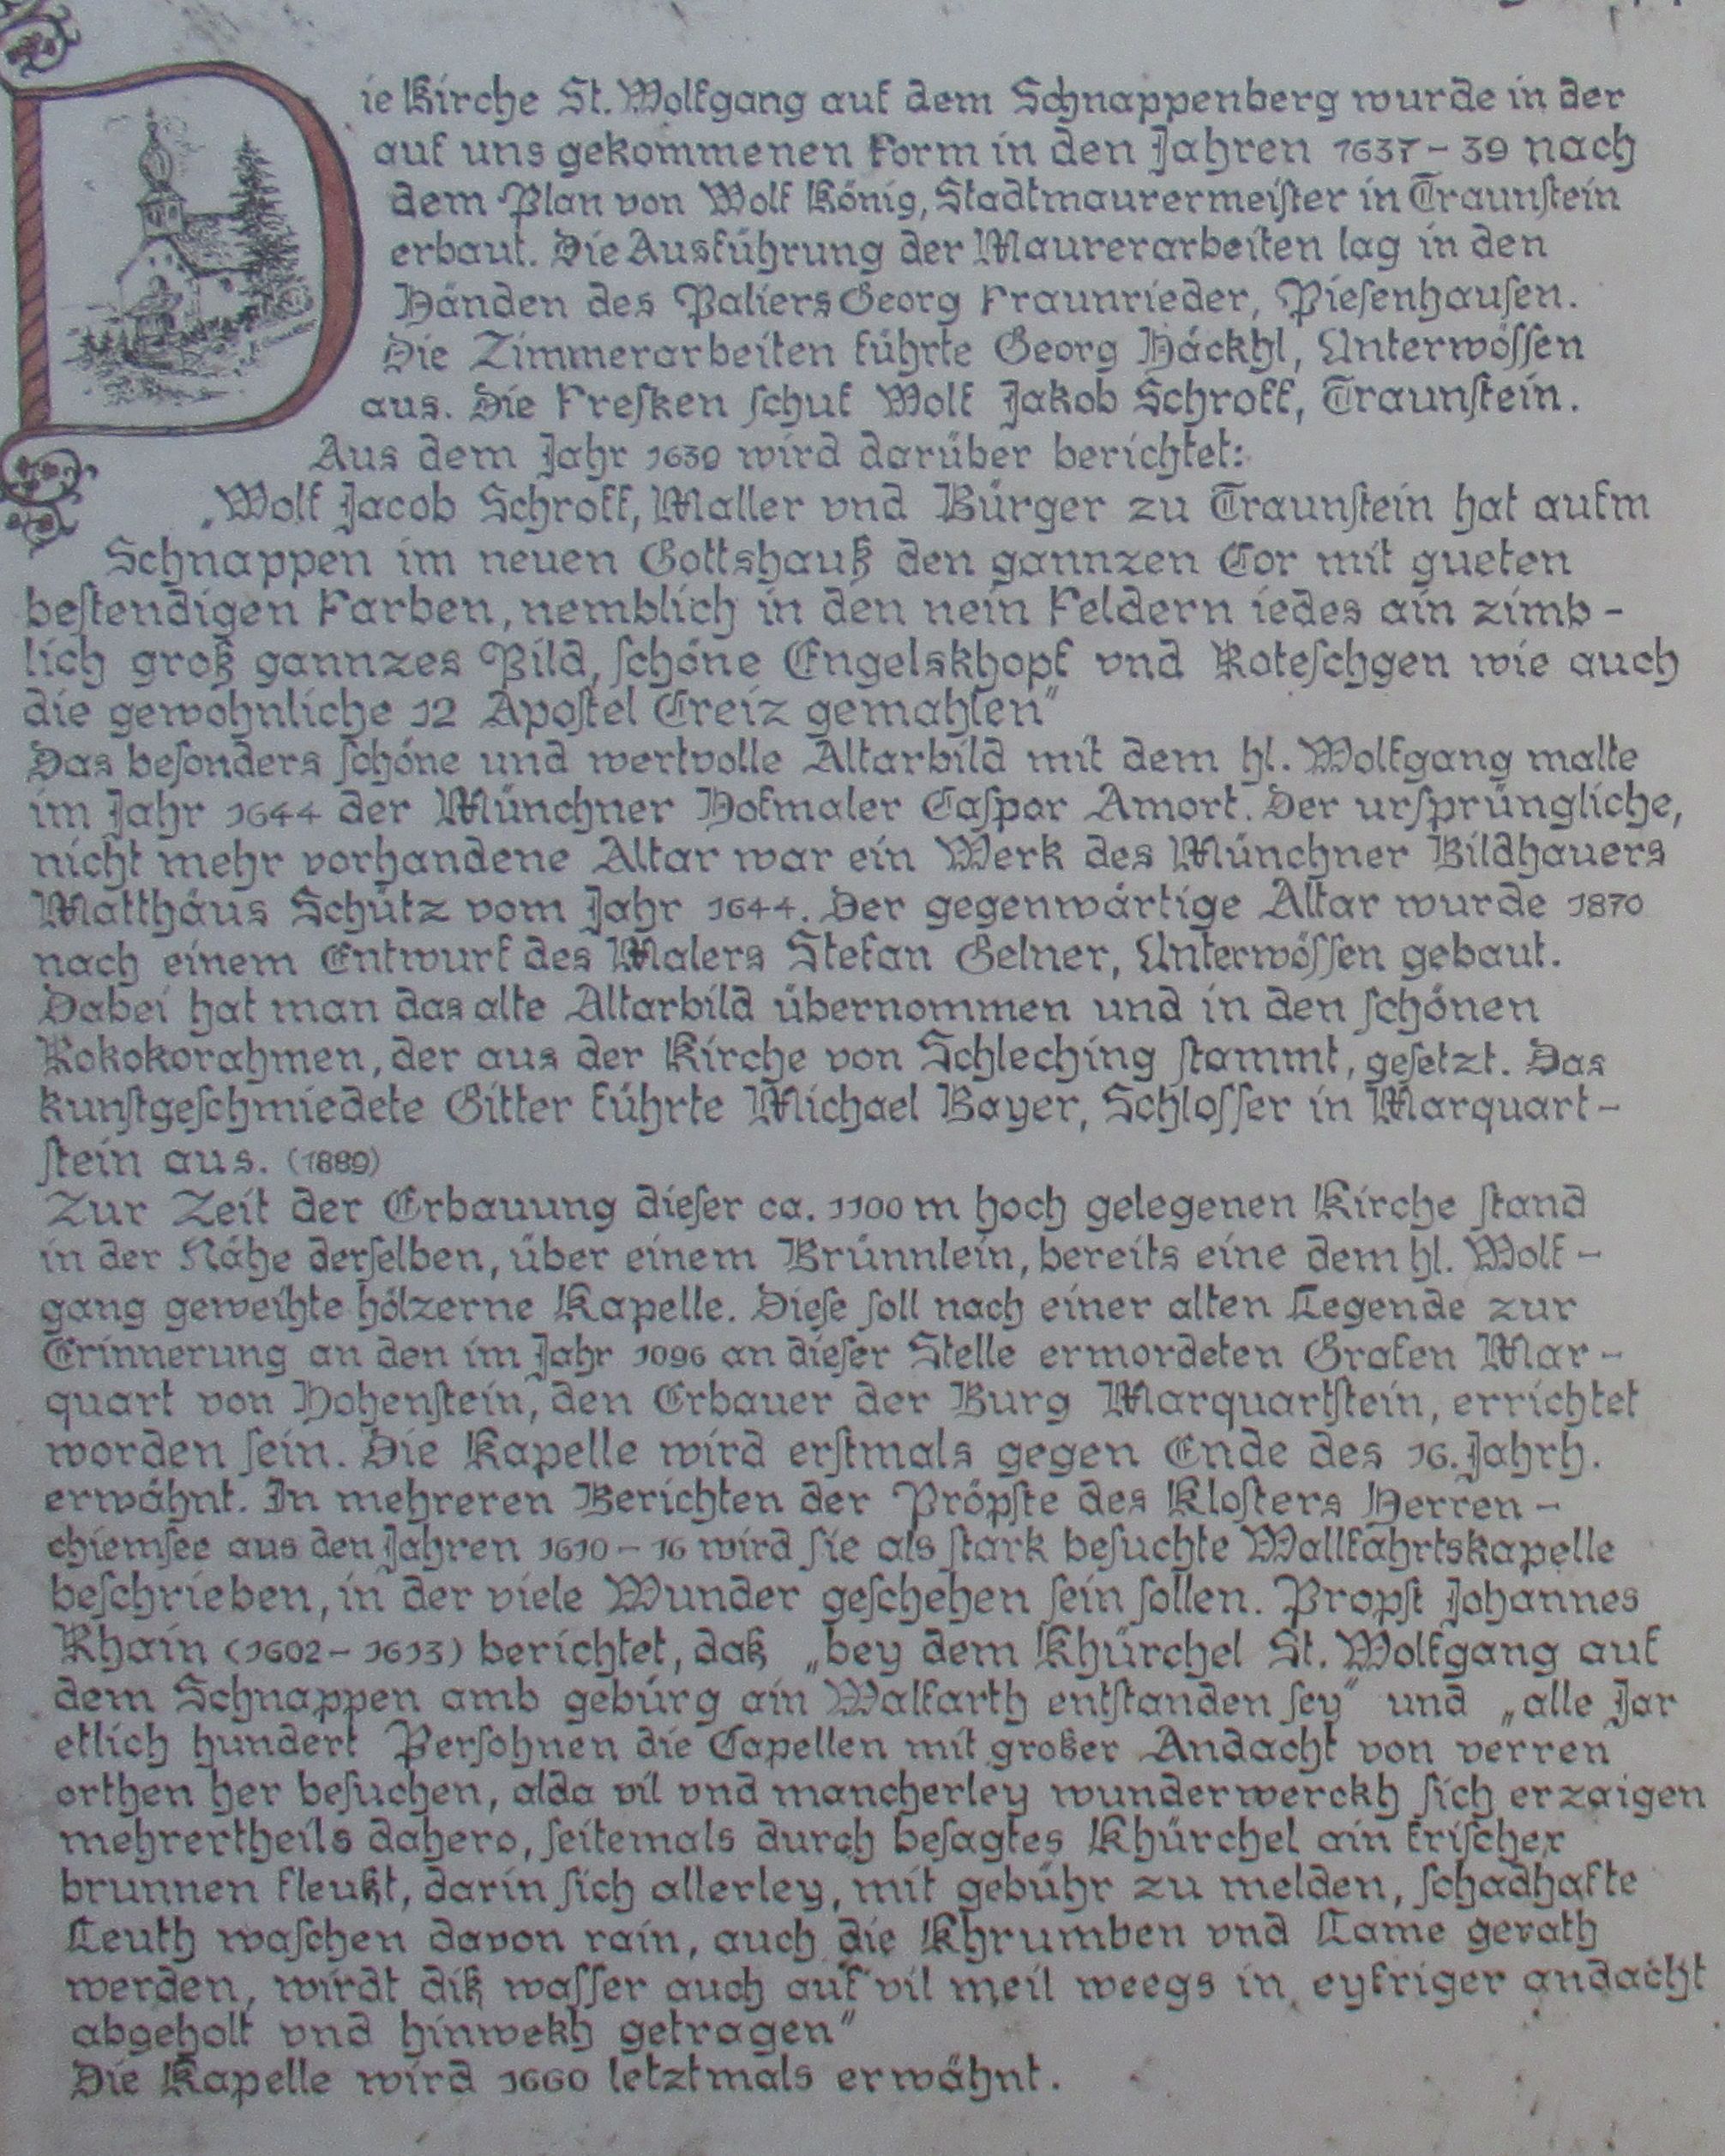 Die Kirche St. Wolfgang auf dem Schnappenberg wurde in der
auf uns gekommenen Form in den Jahren 1637 – 39 nach
dem Plan von Wolf König, Stadtmaurermeiſter in Traunſtein
erbaut. Die Ausführung der Maurerarbeiten lag in den
Händen des Paliers Georg Fraunrieder, Pieſenhauſen.
Die Zimmerarbeiten führte Georg Häckhl, Unterwöſſen
aus. Die Freſken ſchuf Wolf Jakob Schroff, Traunſtein.
Aus dem Jahr 1639 wird darüber berichtet:
„Wolf Jacob Schroff, Maller vnd Bürger zu Traunſtein hat aufm
Schnappen im neuen Gottshauß den gannzen Cor mit gueten
beſtendigen Farben, nemblich in den nein Feldern iedes ain zimb –
lich groß gannzes Pild, ſchöne Engelskhopf vnd Roteſchgen wie auch
die gewohnliche 12 Apoſtel Creiz gemahlen“
Das beſonders ſchöne und wertvolle Altarbild mit dem hl. Wolfgang malte
im Jahr 1644 der Münchner Hofmaler Caſpar Amort. Der urſprüngliche,
nicht mehr vorhandene Altar war ein Werk des Münchner Bildhauers
Matthäus Schütz vom Jahr 1644. Der gegenwärtige Altar wurde 1870
nach einem Entwurf des Malers Stefan Gelner, Unterwöſſen gebaut.
Dabei hat man das alte Altarbild übernommen und in den ſchönen
Rokokorahmen, der aus der Kirche von Schleching ſtammt, geſetzt. Das
kunſtgeſchmiedete Gitter führte Michael Bayer, Schloſſer in Marquart –
ſtein aus. (1889)
Zur Zeit der Erbauung dieſer ca. 1100 m hoch gelegenen Kirche ſtand
in der Nähe derſelben, über einem Brünnlein, bereits eine dem hl. Wolf –
gang geweihte hölzerne Kapelle. Dieſe ſoll nach einer alten Legende zur
Erinnerung an den im Jahr 1096 an dieſer Stelle ermordeten Grafen Mar –
quart von Hohenſtein, den Erbauer der Burg Marquartſtein, errichtet
worden ſein. Die Kapelle wird erſtmals gegen Ende des 16. Jahrh.
erwähnt. In mehreren Berichten der Pröpſte des Kloſters Herren –
chiemſee aus den Jahren 1610 – 16 wird ſie als ſtark beſuchte Wallfahrtskapelle
beſchrieben, in der viele Wunder geſchehen ſein ſollen. Propſt Johannes
Rhain (1602 – 1613) berichtet, daß „bey dem Khürchel St. Wolfgang auf
dem Schnappen amb gebürg ain Walfarth entſtanden ſey“ und „alle Jar
etlich hundert Perſohnen die Capellen mit großer Andacht von verren
orthen her beſuchen, alda vil vnd mancherley wunderwerckh ſich erzaigen
mehrertheils dahero, ſeitemals durch beſagtes Khürchel ain friſcher
brunnen fleußt, darin ſich allerley, mit gebühr zu melden, ſchadhafte
Leuth waſchen davon rain, auch die Khrumben vnd Lame gerath
werden, wirdt diß waſſer auch auf vil meil weegs in eyfriger andacht
abgeholt vnd hinwekh getragen“
Die Kapelle wird 1660 letztmals erwähnt.